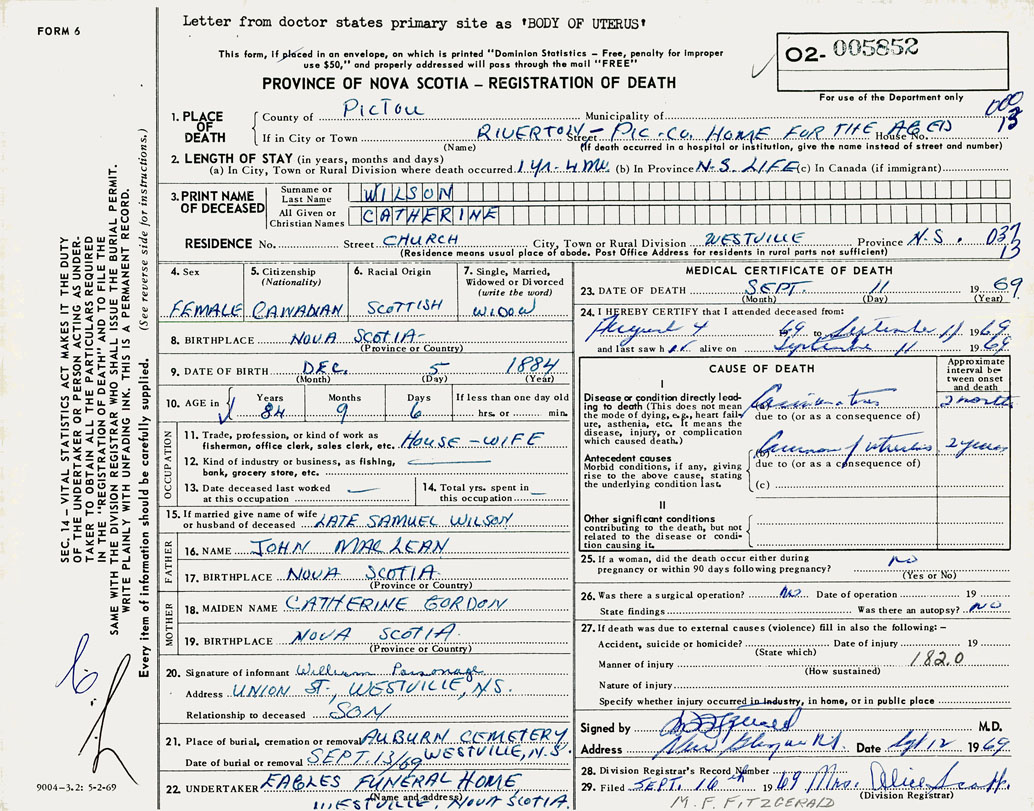 FORM 6
Letter from doctor states primary site as 'BODY OF UTERUS'
This form, if placed in an envelope, on which is printed "Dominion Statistics – Free, penalty for improper
use $50," and properly addressed will pass through the mail "FREE"
O2- 005852
For use of the Department only
PROVINCE OF NOVA SCOTIA – REGISTRATION OF DEATH
000
13
1. PLACE OF DEATH
County of PICTOU Municipality of
If in City or Town RIVERTON – PIC. CO. HOME FOR THE AGED Street House No.
(Name) (If death occurred in a hospital or institution, give the name instead of street and number)
2. LENGTH OF STAY (in years, months and days)
(a) In City, Town or Rural Division where death occurred 1 yr. - 4 mo. (b) In Province N-S. LIFE (c) In Canada (if immigrant)
3. PRINT NAME OF DECEASED
Surname or Last Name WILSON
All Given or Christian Names CATHERINE
RESIDENCE No. Street CHURCH City, Town or Rural Division WESTVILLE Province N.S. 037
13
(Residence means usual place of abode. Post Office Address for residents in rural parts not sufficient)
4. Sex FEMALE
5. Citizenship (Nationality) CANADIAN
6. Racial Origin SCOTTISH
7. Single, Married, Widowed or Divorced (write the word) WIDOW
8. BIRTHPLACE NOVA SCOTIA
(Province or Country)
9. DATE OF BIRTH DEC. 5 1884
(Month) (Day) (Year)
10. AGE in Years 84 Months 9 Days 6 If less than one day old hrs. or min.
OCCUPATION
11. Trade, profession, or kind of work as fisherman, office clerk, sales clerk, etc. HOUSE-WIFE
12. Kind of industry or business, as fishing, bank, grocery store, etc.
13. Date deceased last worked at this occupation
14. Total yrs. spent in this occupation
15. If married give name of wife or husband of deceased LATE SAMUEL WILSON
FATHER
16. NAME JOHN MACLEAN
17. BIRTHPLACE NOVA SCOTIA
(Province or Country)
MOTHER
18. MAIDEN NAME CATHERINE GORDON
19. BIRTHPLACE NOVA SCOTIA.
(Province or Country)
20. Signature of informant William Parsonage
Address UNION ST., WESTVILLE, N.S.
Relationship to deceased SON
21. Place of burial, cremation or removal AUBURN CEMETERY
Date of burial or removal SEPT. 13/69 WESTVILLE, N.S.
22. UNDERTAKER EAGLES FUNERAL HOME
(Name and address)
WESTVILLE, NOVA SCOTIA.
MEDICAL CERTIFICATE OF DEATH
23. DATE OF DEATH SEPT. 11 1969
(Month) (Day) (Year)
24. I HEREBY CERTIFY that I attended deceased from:
August 4 69 to September 11 1969
and last saw h alive on September 11 1969
CAUSE OF DEATH
Approximate interval between onset and death
I
Disease or condition directly leading to death (This does not mean the mode of dying, e.g., heart failure, asthenia, etc. It means the disease, injury, or complication which caused death.)
(a) 2 months
due to (or as a consequence of)
Antecedent causes
Morbid conditions, if any, giving rise to the above cause, stating the underlying condition last.
(b) 2 years
due to (or as a consequence of)
(c)
II
Other significant conditions
contributing to the death, but not related to the disease or condition causing it.
25. If a woman, did the death occur either during pregnancy or within 90 days following pregnancy? no
(Yes or No)
26. Was there a surgical operation? No Date of operation 19
State findings Was there an autopsy? NO
27. If death was due to external causes (violence) fill in also the following: –
Accident, suicide or homicide? Date of injury 19
(State which)
Manner of injury 182.0
(How sustained)
Nature of injury
Specify whether injury occurred in industry, in home, or in public place
Signed by M.D.
Address New Glasgow N.S. Date Sept 12 1969
28. Division Registrar's Record Number
29. Filed SEPT. 16th 1969 Mrs. Alice
(Division Registrar)
M. F. FITZGERALD
SEC. 14 – VITAL STATISTICS ACT MAKES IT THE DUTY
OF THE UNDERTAKER OR PERSON ACTING AS UNDER-
TAKER TO OBTAIN ALL THE PARTICULARS REQUIRED
IN THE "REGISTRATION OF DEATH" AND TO FILE THE
SAME WITH THE DIVISION REGISTRAR WHO SHALL ISSUE THE BURIAL PERMIT.
WRITE PLAINLY WITH UNFADING INK. THIS IS A PERMANENT RECORD.
Every item of information should be carefully supplied. (See reverse side for instructions.)
9004–3.2: 5-2-69